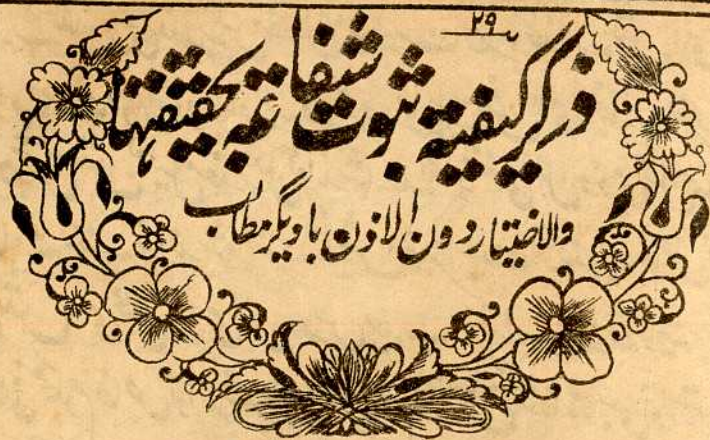 ۲۹
ذکر کیفیته ثبوت شفاعته بحقیقتها
والاختیار دون الاذن با دیگر مطالب